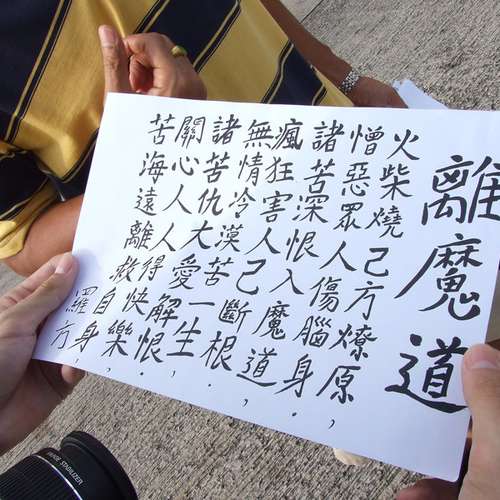 離魔道
火柴燒己方燎原,
憎惡眾人傷腦身.
諸苦深恨入魔道.
瘋狂害人己斷根.
無情冷漠苦一生.
諸苦仇大愛解恨.
關心人人得快樂,
苦海遠離救自身,
羅方
IMAGE STABILIZER